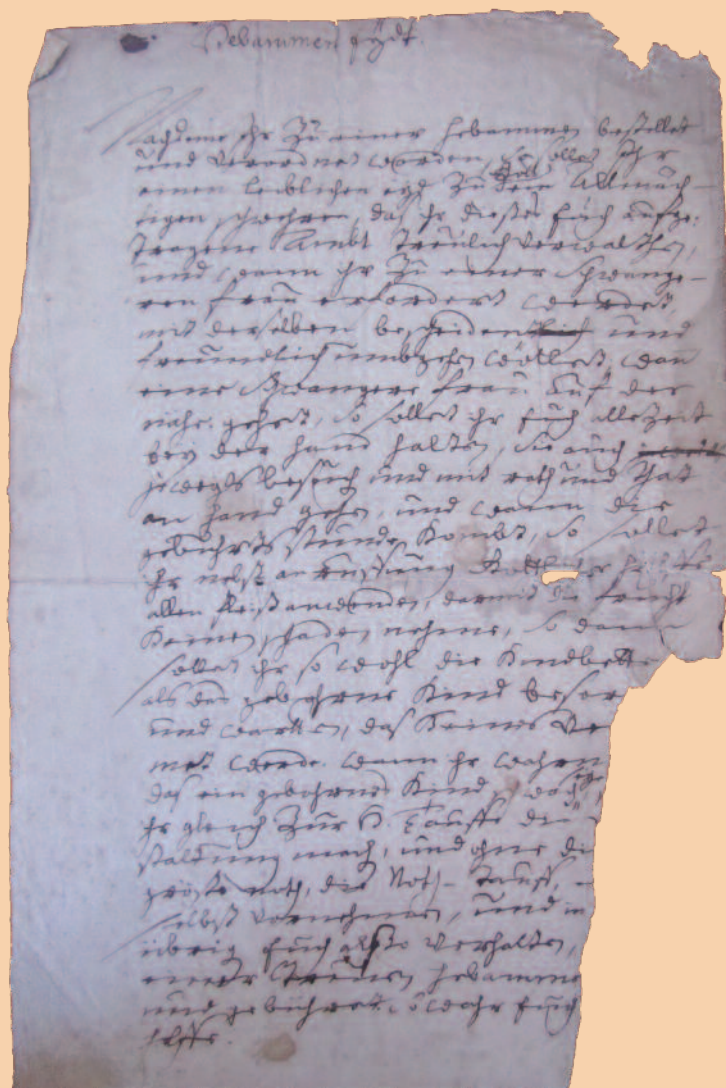 Hebammen Eydt.
Nachdeme Ihr zu einer hebammen bestellet
und verordnet worden, so sollet Ihr
einen leiblichen eyd zu Gott dem Allmäch-
tigen schwehren, das ihr dieses Euch aufge-
tragene Ambt treülich verwalthen,
und wann ihr zu einer schwange-
ren frau erfordert werdet,
mit derselben bescheiden und
freündlich umbgehen wöllet, wan
eine schwangere frau auf der
nähe gehet, so sollet ihr Euch allezeit
bey der hand halten, sie auch
jeweyls besuch und mit rath und that
an hand gehen, und wann die
gebuhrts stunde kombt, so sollet
ihr nebst anruffung Göttlicher
allen fleiß anwenden, darmit die frucht
keinen schaden nehme, so dann
sollet ihr so wohl die Kindbette
als das gebohrne Kind besor
und warten, das keines ve
met werde. wann ihr wahrn
das ein gebohrnes Kind schwach
ihr gleich zur H. Tauffe die
staldtung mach, und ohne die
gröste noth, die Noth-Tauff,
selbst vornehmen, und in
übrig Euch also verhalten,
einer treüen hebamme
und gebühret. So wahr Euch
helffe.